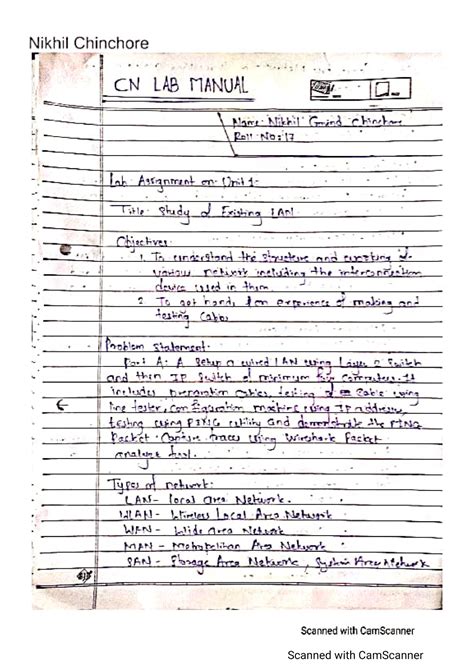 Nikhil Chinchore
CN LAB MANUAL
Name: Nikhil Govind Chinchore
Roll No: 17
Lab Assignment on Unit 1
Title: Study of Existing LAN
Objectives
1. To understand the structure and working of
various network including the interconnection
device used in them.
2. To get hands on experience of making and
testing Cables
Problem Statement:
Part A: A Setup a wired LAN using Layer 2 Switch
and then IP Switch of minimum Computers. It
includes preparation cables, testing of Cable using
line tester, configuration machine using IP address,
testing using PING utility and demonstrate the PING
Packet Capture traces using Wireshark Packet
analyze tool.
Types of network:
LAN - local area Network.
WLAN - Wireless Local Area Network
WAN - Wide area Network
MAN - Metropolitan Area Network
SAN - Storage Area Network, System Area Network
Scanned with CamScanner
Scanned with CamScanner